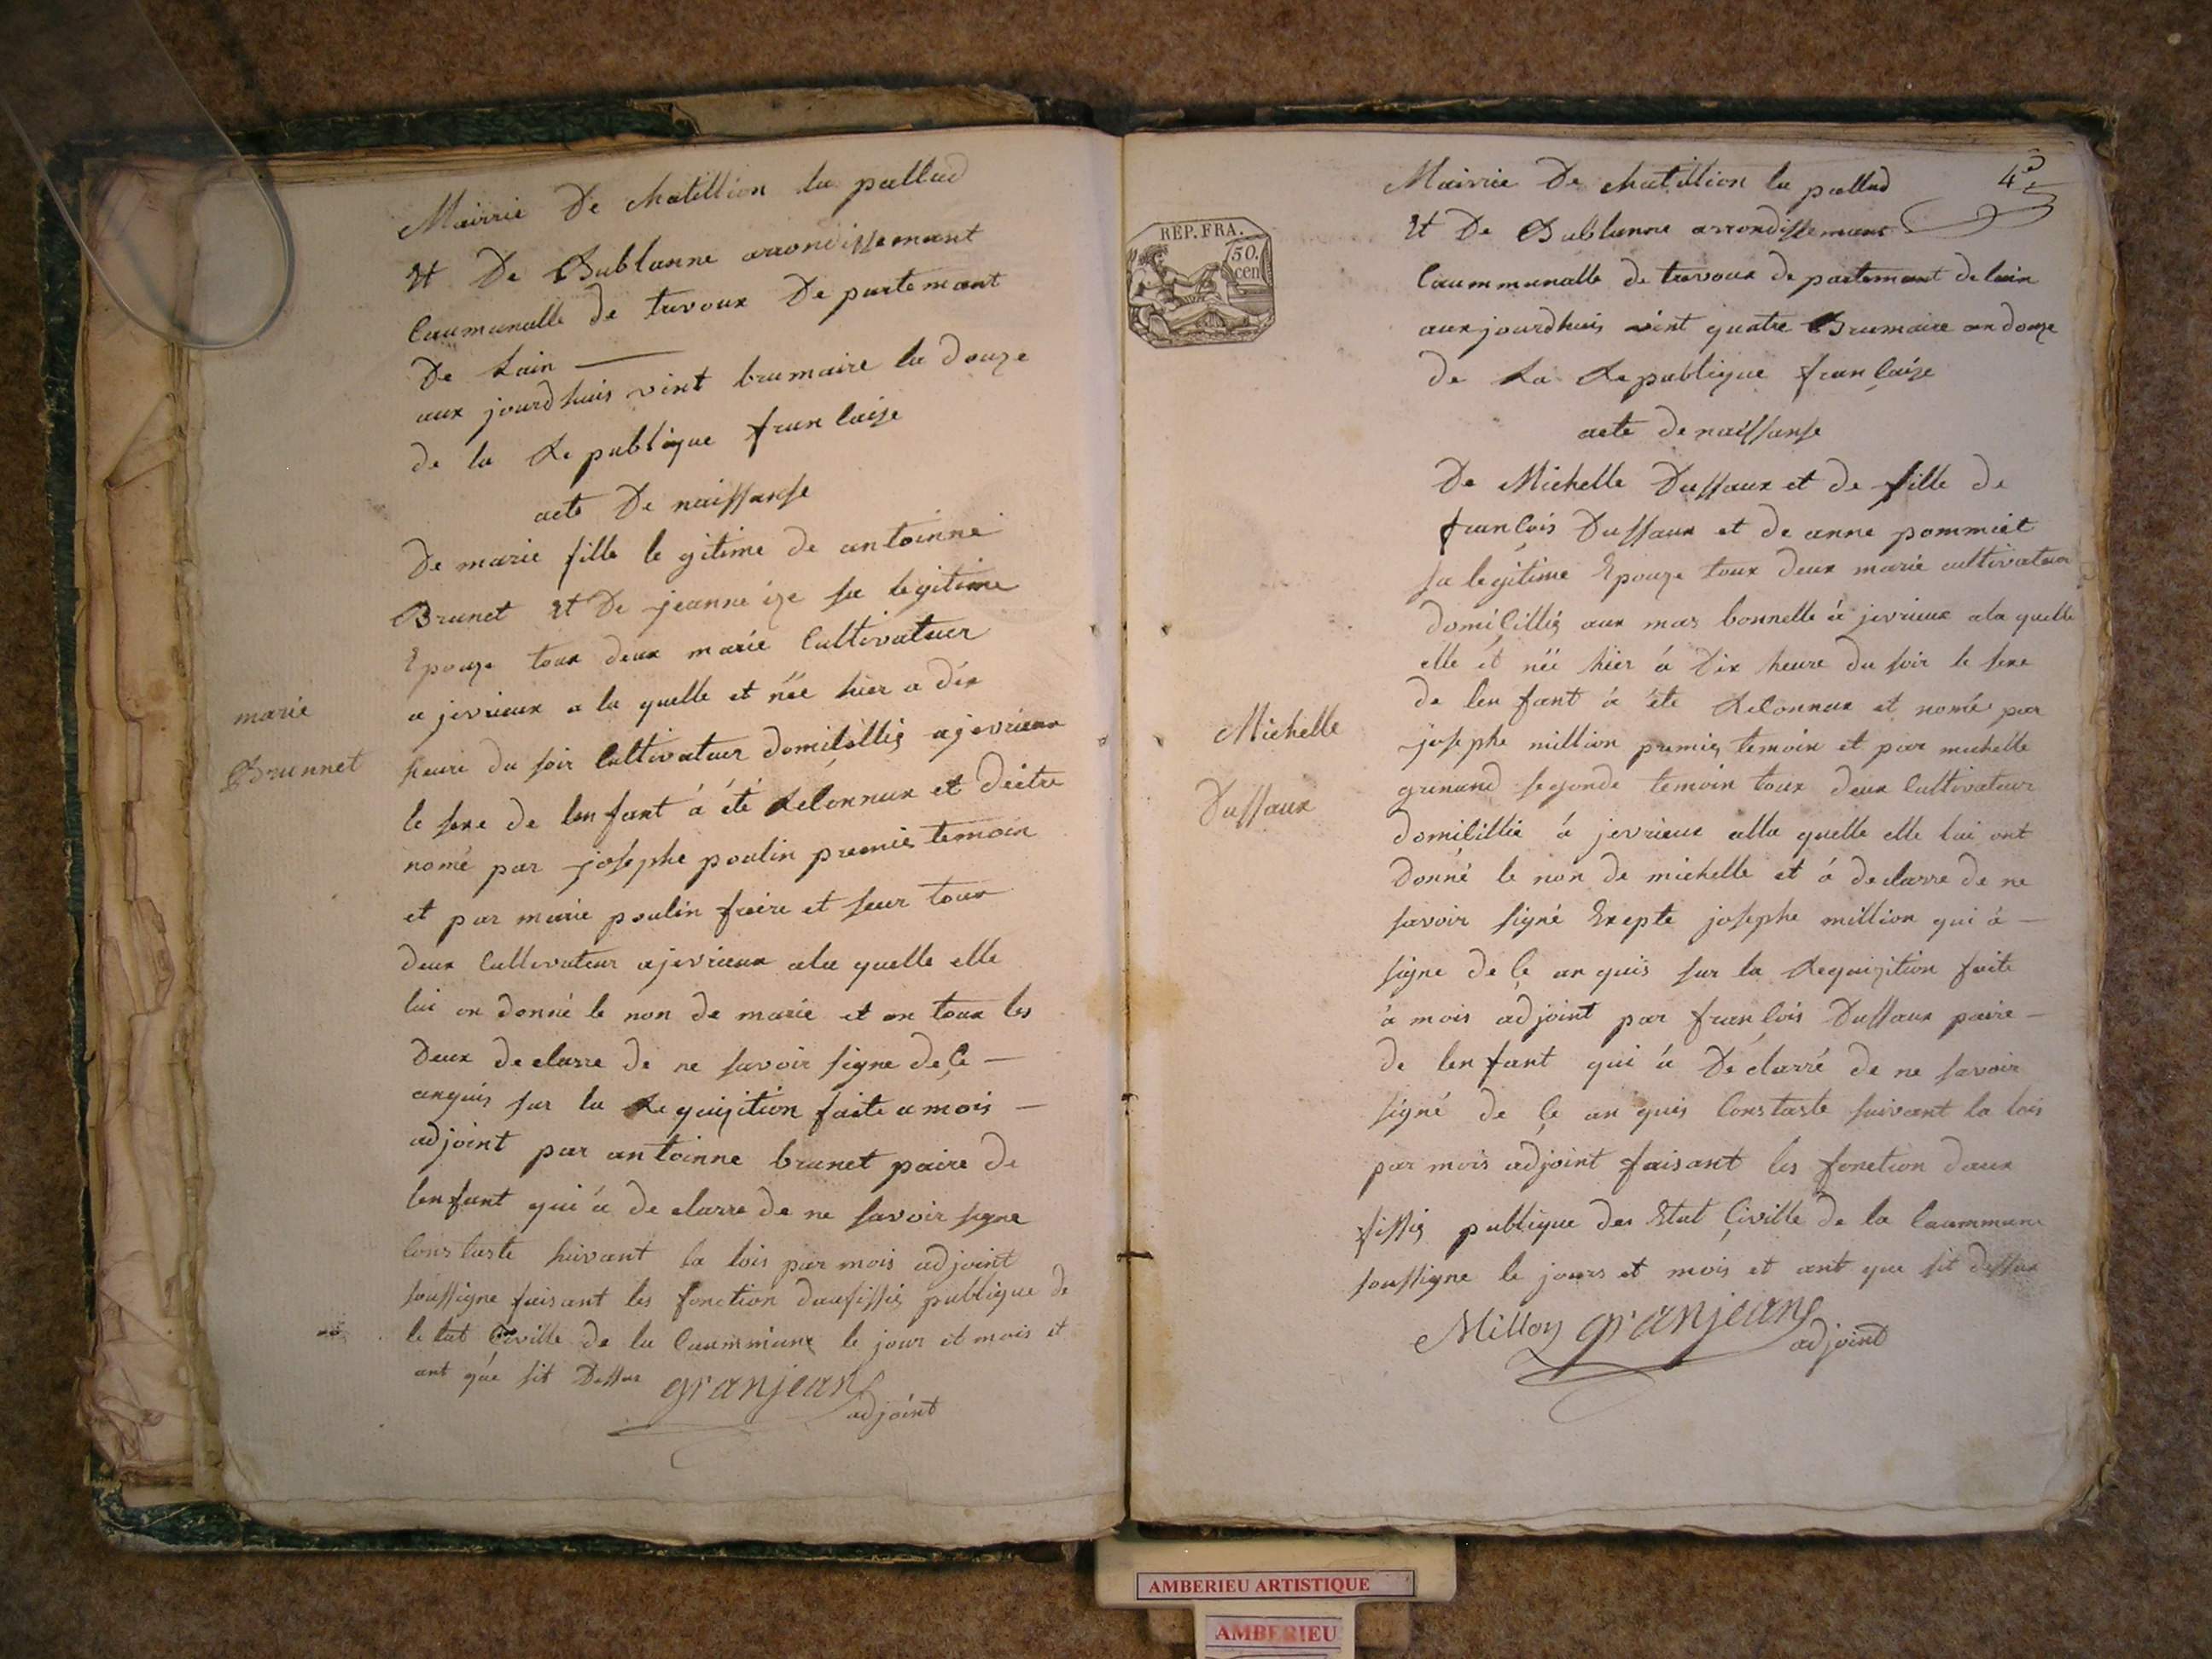 Mairrie De chatillion la pallud
Et De Bublanne arrondissemant
Caumunalle de trevoux De partemant
De Lain
aux jourdhuis vint brumaire la douze
de la Republique francaise
acte De naissanse
De marie fille le gitime de antoinne
Brunet Et De jeanne ize sa legitime
Epouze toux deux marié Cultivatuer
a jevrieux a la quelle et née hier a dix
heure du soir Cultivatuer domicillié ajevrieux
marie
Brunnet
le sexe de lenfant á été Reconnux et deitre
nomé par josephe poulin premié temoin
et par marie poulin freire et seur toux
deux Cultivateur ajevrieux ala quelle elle
lui on donné le non de marie et on toux les
Deux declarre de ne savoir signe de Ce
anquis sur la Requizition faite a mois
adjoint par antoinne brunet paire de
lenfant qui á de clarre de ne savoir signe
Constaste suivant la lois par mois adjoint
soussigne faisant les fonction daufissié publique de
le tat Civille de la Caummune le jour et mois et
ant que sit Dessus granjean
adjoint
4e
REP. FRA.
50.
cen
Mairrie De chatillion la pallud
Et De Bublanne arrondissemant
Caummunalle de trevoux de partemant de lain
aux jourdhuis vint quatre Brumaire an douze
de La Republique francaize
acte de naissanse
De Michelle Dussaux et de fille de
francois Dussaux et de anne pommiet
sa legitime Epouze toux deux marié cultivateur
domicillié aux mas bonnelle á jevrieux ala quelle
elle ét née hier á Dix heure du soir le sexe
de lenfant á éte Reconnux et nomé par
josephe million premié temoin et par michelle
Michelle
Dussaux
segonde temoin toux deux Cultivateur
domicillié á jevrieux alla quelle elle lui ont
Donné le non de michelle et á declarre de ne
savoir signé Exepte josephe million qui á
signe de Ce an quis sur la Requizition faite
á mois adjoint par francois Dussaux paire
de lenfant qui á Déclarré de ne savoir
signé de Ce an quis Constaste suivant la lois
par mois adjoint faisant les fonction daux
fissié publique des Etat Civille de la Caummune
soussigne le jours et mois et ant que sit dessus
Milloy granjean
adjoint
AMBERIEU ARTISTIQUE
AMBERIEU